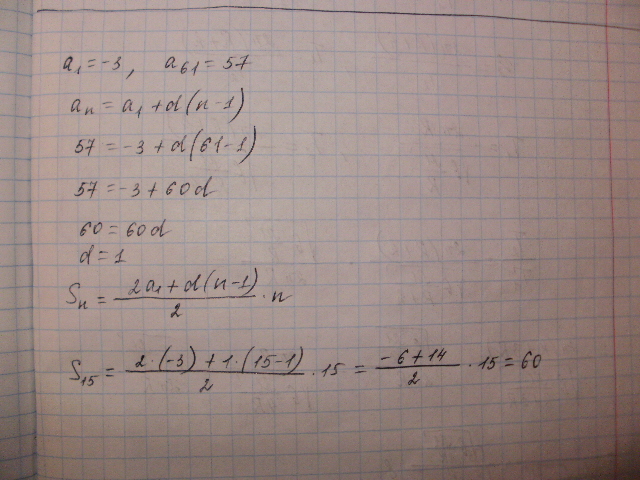 a₁ = -3, a₆₁ = 57
aₙ = a₁ + d(n-1)
57 = -3 + d(61-1)
57 = -3 + 60d
60 = 60d
d = 1
Sₙ = (2a₁ + d(n-1))/2 · n
S₁₅ = (2·(-3) + 1·(15-1))/2 · 15 = (-6+14)/2 · 15 = 60